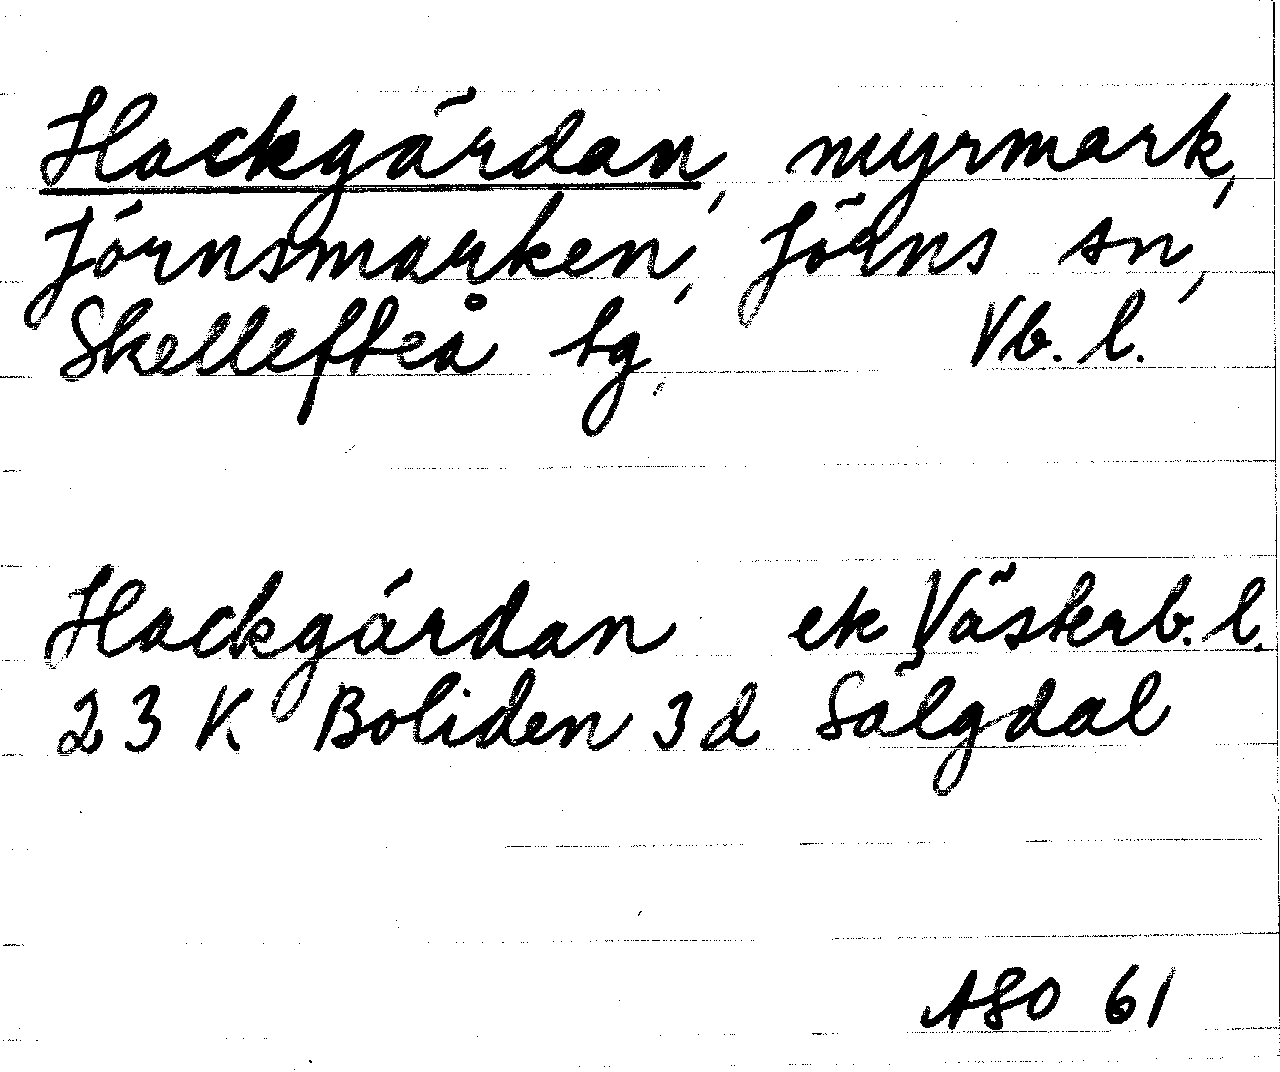 Hackgärdan, myrmark,
Jörnsmarken, Jörns sn,
Skellefteå tg, Vb. l.
Hackgärdan ek Västerb. l.
23 K Boliden 3d Sälgdal
ASO 61